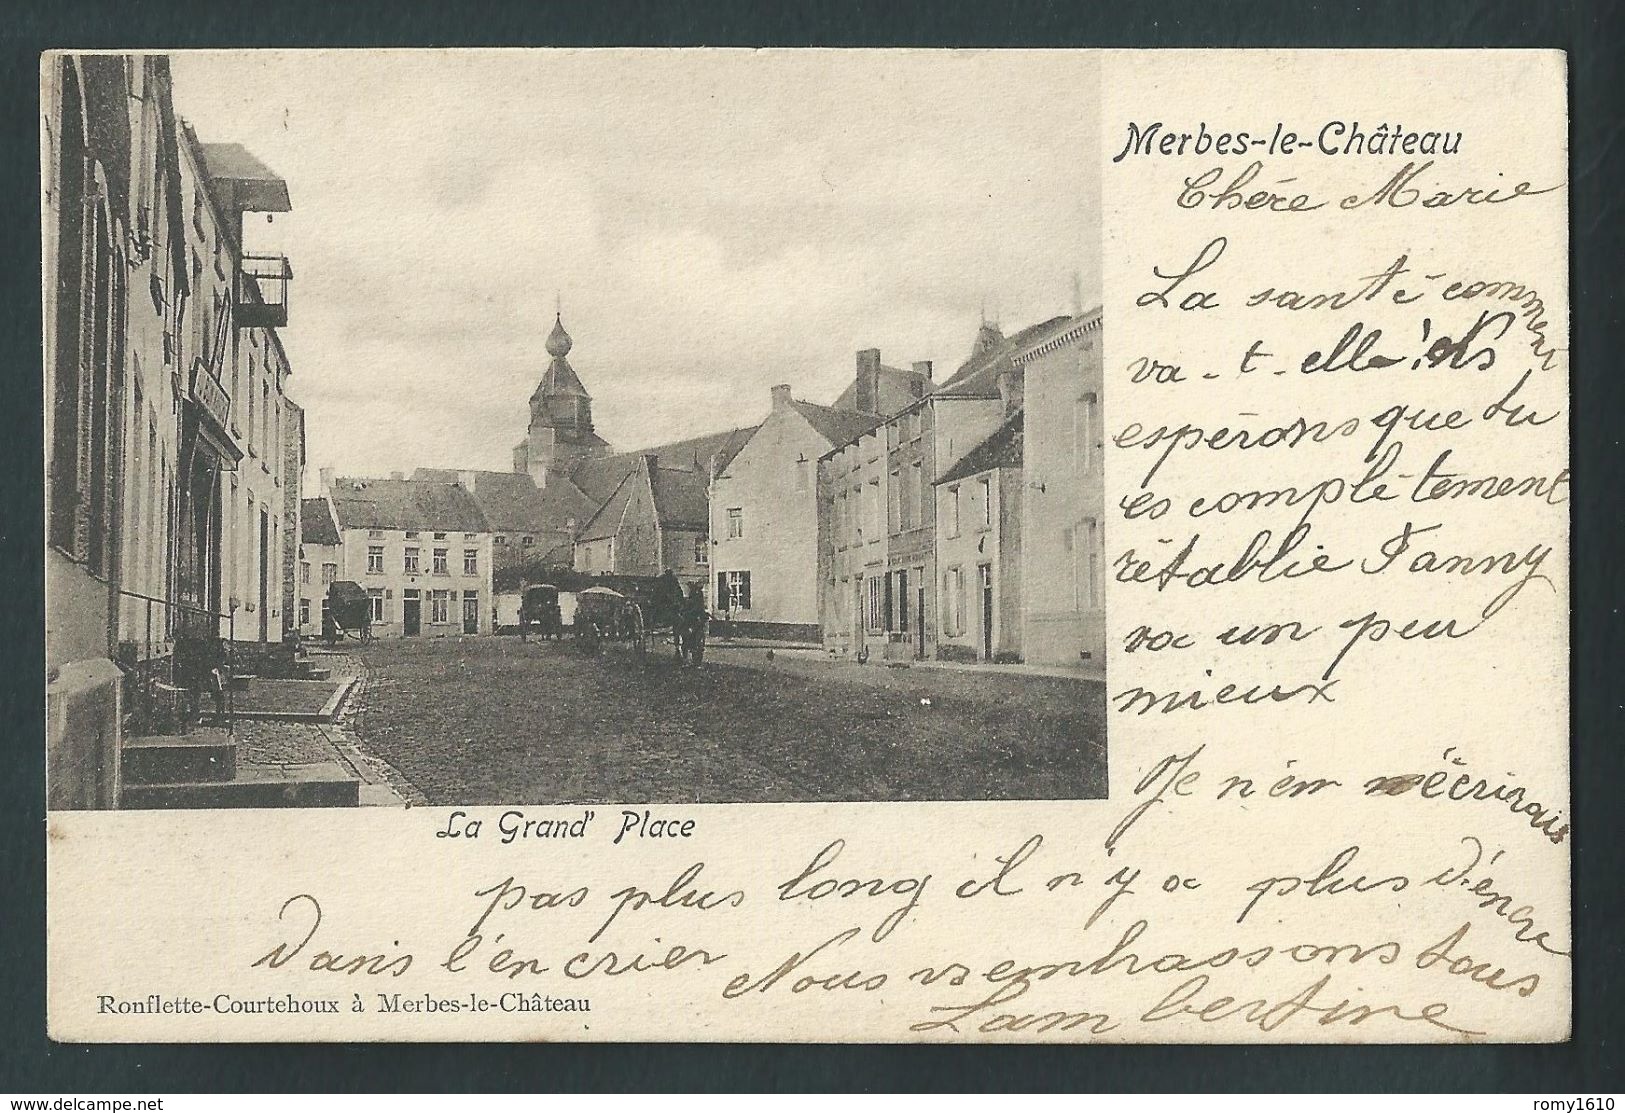 Merbes-le-Château
Chére Marie
La santé comment
va-t-elle
espérons que tu
es complétement
rétablie Fanny
va un peu
mieux
Je n'en écrirais
pas plus long il n'y a plus d'encre
dans l'encrier Nous embrassons tous
Lambertine
La Grand' Place
Ronflette-Courtehoux à Merbes-le-Château
delcampe.net
romy1610